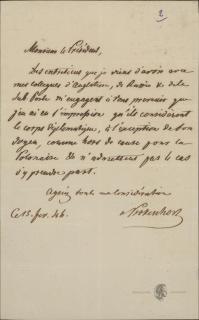 2
Monsieur le Président,
Des entretiens que je viens d'avoir avec
mes collègues d'Angleterre, de Russie & de la
Sub. Porte m'engagent à Vous prévenir que
j'en ai eu l'impression qu'ils considèrent
le corps diplomatique, à l'exception de son
Doyen, comme hors de cause pour la
Polonaise & n'admettent pas le cas
d'y prendre part.
Agréez toute ma considération
Ce 15. fev. 46.